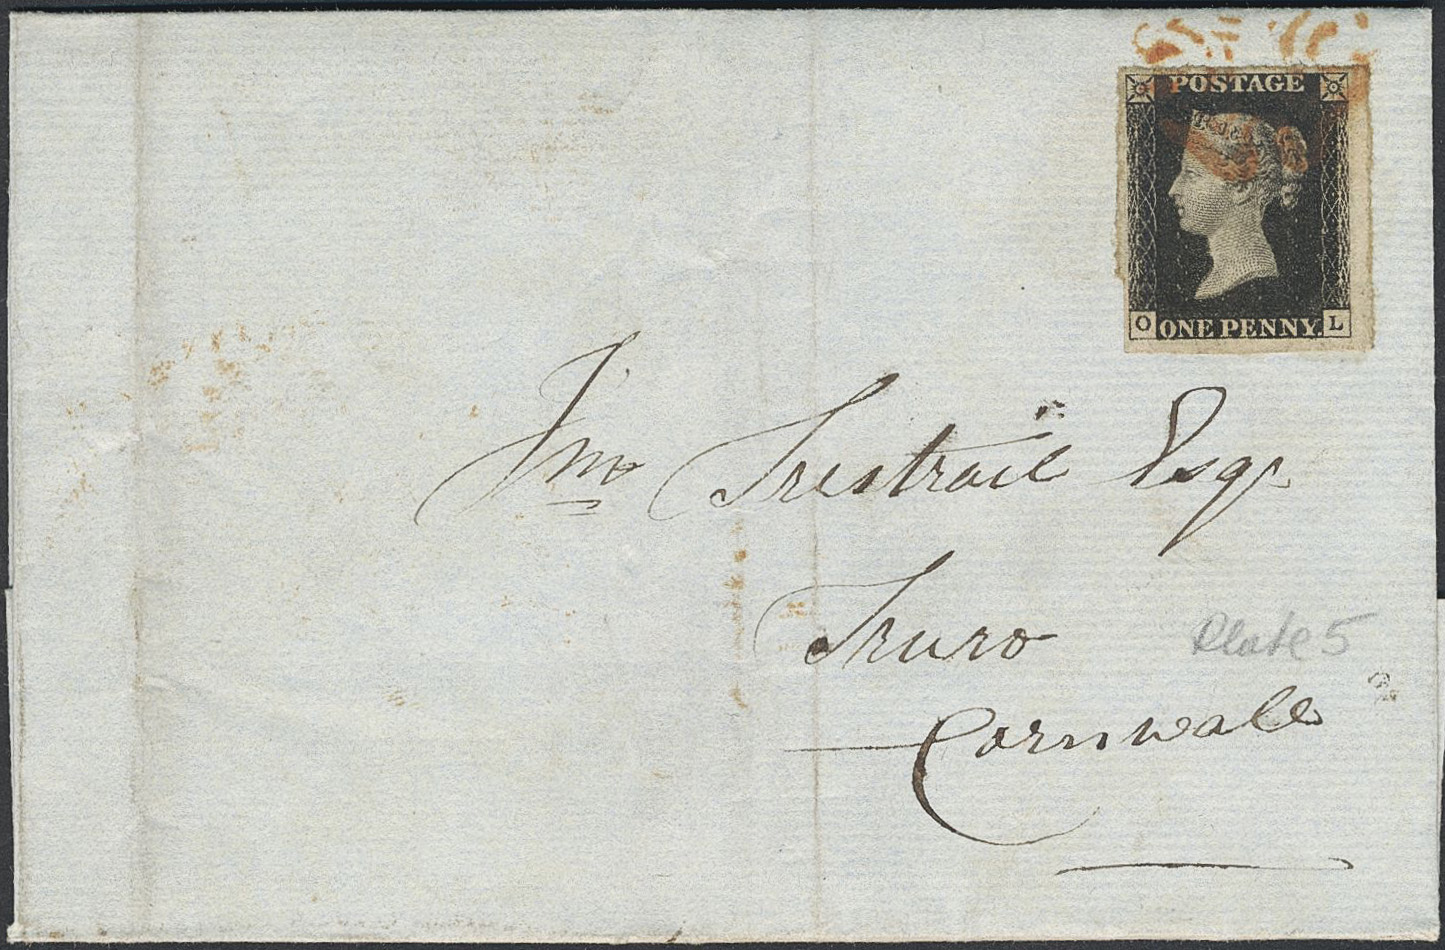 POSTAGE
O ONE PENNY. L
Jno Trestrail Esqr
Truro
Plate 5
Cornwall